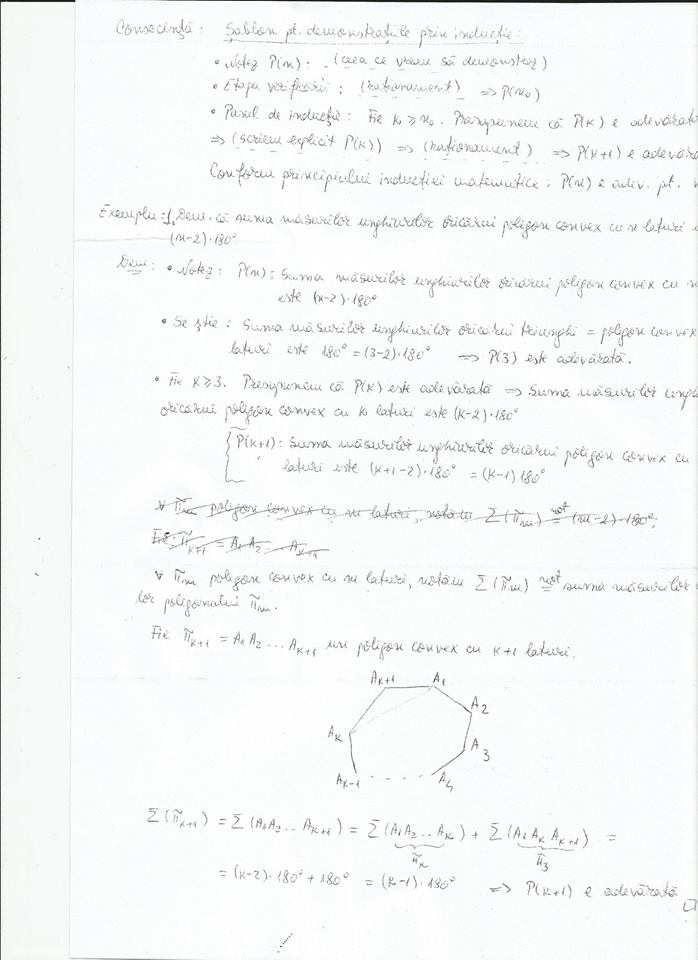 Consecință: Șablon pt. demonstrațiile prin inducție:
• Notez P(n): (ceea ce vreau să demonstrez)
• Etapa verificării: (raționament) ⇒ P(n₀)
• Pasul de inducție: Fie k ≥ n₀. Presupunem că P(k) e adevărat
⇒ (scriem explicit P(k)) ⇒ (raționament) ⇒ P(k+1) e adevăra
Conform principiului inducției matematice: P(n) e adev. pt.
Exemplu: 1. Dem. că suma măsurilor unghiurilor oricărui poligon convex cu n laturi
(n-2)·180°
Dem: • Notez: P(n): Suma măsurilor unghiurilor oricărui poligon convex cu n
este (n-2)·180°
• Se știe: Suma măsurilor unghiurilor oricărui triunghi = poligon convex
laturi este 180° = (3-2)·180° ⇒ P(3) este adevărată.
• Fie k≥3. Presupunem că P(k) este adevărată ⇒ Suma măsurilor ungh
oricărui poligon convex cu k laturi este (k-2)·180°
P̃(k+1): Suma măsurilor unghiurilor oricărui poligon convex cu
laturi este (k+1-2)·180° = (k-1)180°
∀ π̃ₘ poligon convex cu m laturi, notăm Σ(π̃ₘ) not= (m-2)·180°;
Fie: π̃ₖ₊₁ = A₁A₂...Aₖ₊₁
∀ π̃ₘ poligon convex cu m laturi, notăm Σ(π̃ₘ) not= suma măsurilor
lor poligonului π̃ₘ.
Fie π̃ₖ₊₁ = A₁A₂...Aₖ₊₁ un poligon convex cu k+1 laturi.
Aₖ₊₁ A₁
A₂
Aₖ
A₃
Aₖ₋₁ A₄
Σ(π̃ₖ₊₁) = Σ(A₁A₂...Aₖ₊₁) = Σ(A₁A₂...Aₖ) + Σ(A₁AₖAₖ₊₁) =
π̃ₖ π̃₃
= (k-2)·180° + 180° = (k-1)·180° ⇒ P(k+1) e adevărată
□